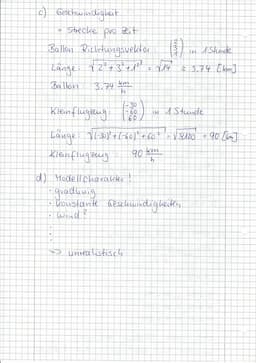 c) Geschwindigkeit
= Strecke pro Zeit
Ballon Richtungsvektor (2 3 1) in 1 Stunde
Länge: √2² + 3² + 1² = √14 ≈ 3.74 [km]
Ballon: 3.74 km/h
Kleinflugzeug (-30 -60 60) in 1 Stunde
Länge: √(-30)² + (-60)² + 60² = √8100 = 90 [km]
Kleinflugzeug 90 km/h
d) Modellcharakter!
· gradlinig
· konstante Geschwindigkeiten
· Wind?
·
·
→ unrealistisch